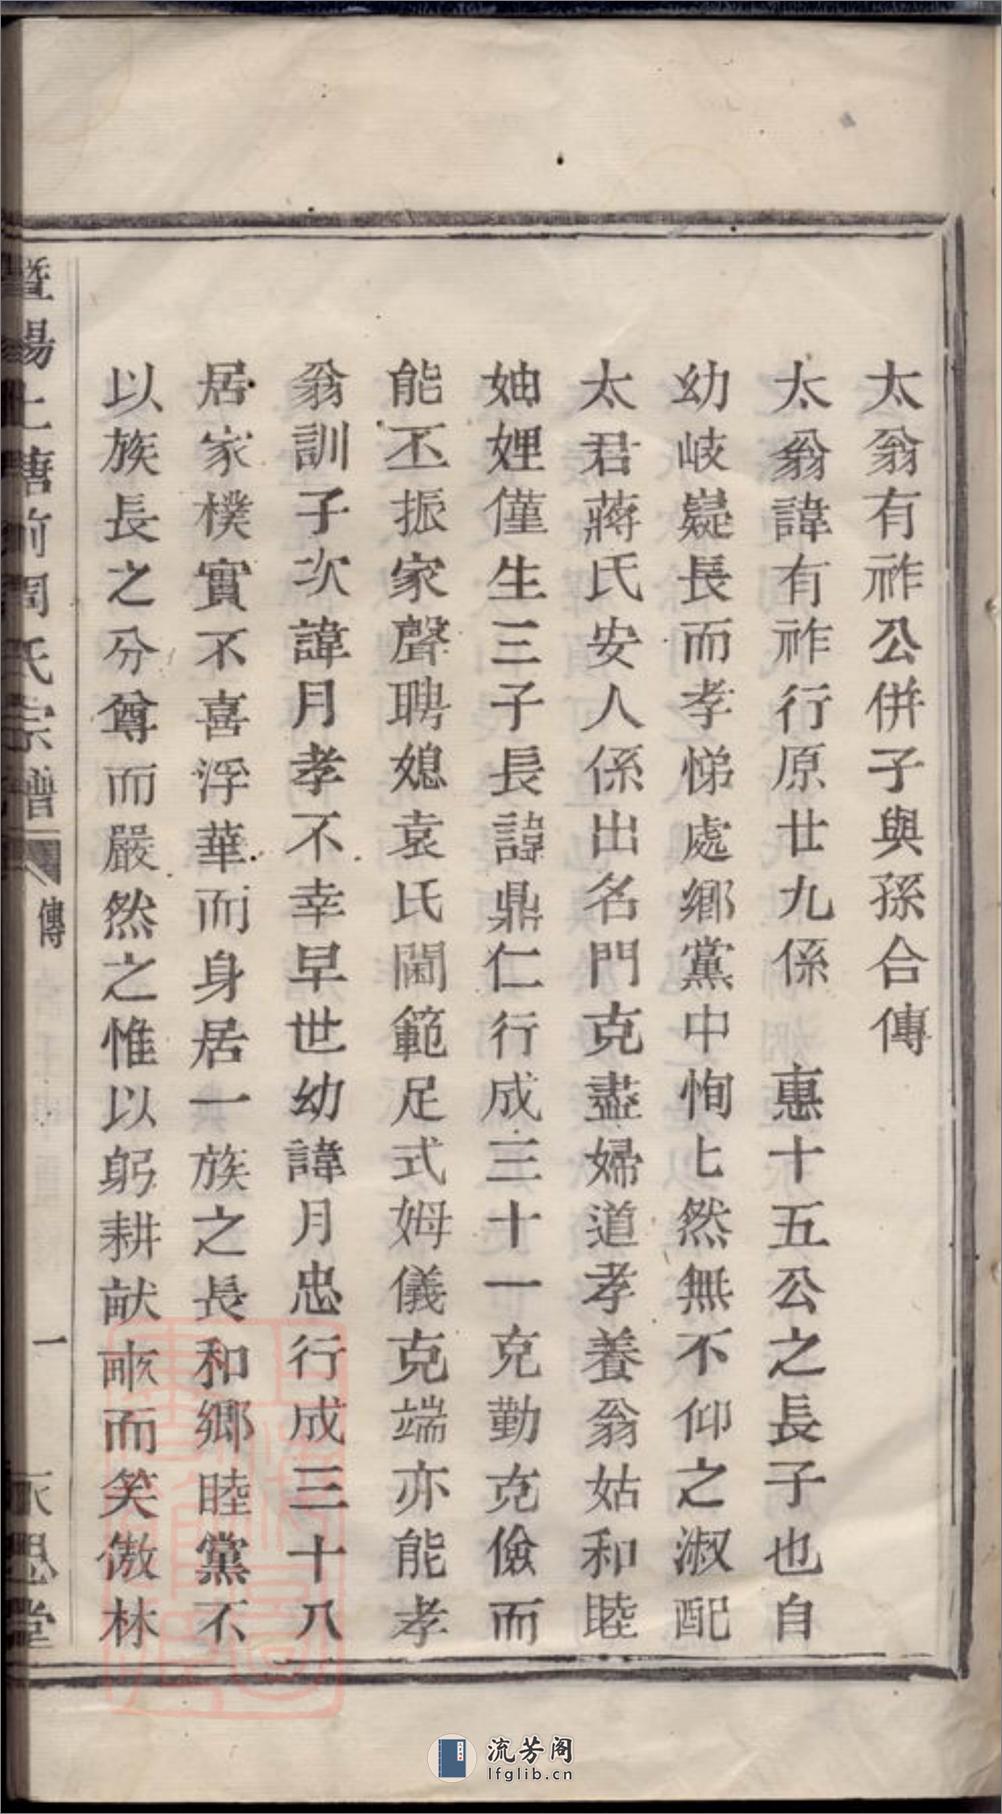 太翁有祚公併子與孫合傳
太翁諱有祚行原廿九係　惠十五公之長子也自
幼岐嶷長而孝悌處鄉黨中恂〻然無不仰之淑配
太君蔣氏安人係出名門克盡婦道孝養翁姑和睦
妯娌僅生三子長諱鼎仁行成三十一克勤克儉而
能丕振家聲聘媳袁氏閫範足式姆儀克端亦能孝
翁訓子次諱月孝不幸早世幼諱月忠行成三十八
居家樸實不喜浮華而身居一族之長和鄉睦黨不
以族長之分尊而嚴然之惟以躬耕畎畝而笑傲林
暨陽上塘前周氏宗譜
傳
一
永思堂
流芳阁
lfglib.cn